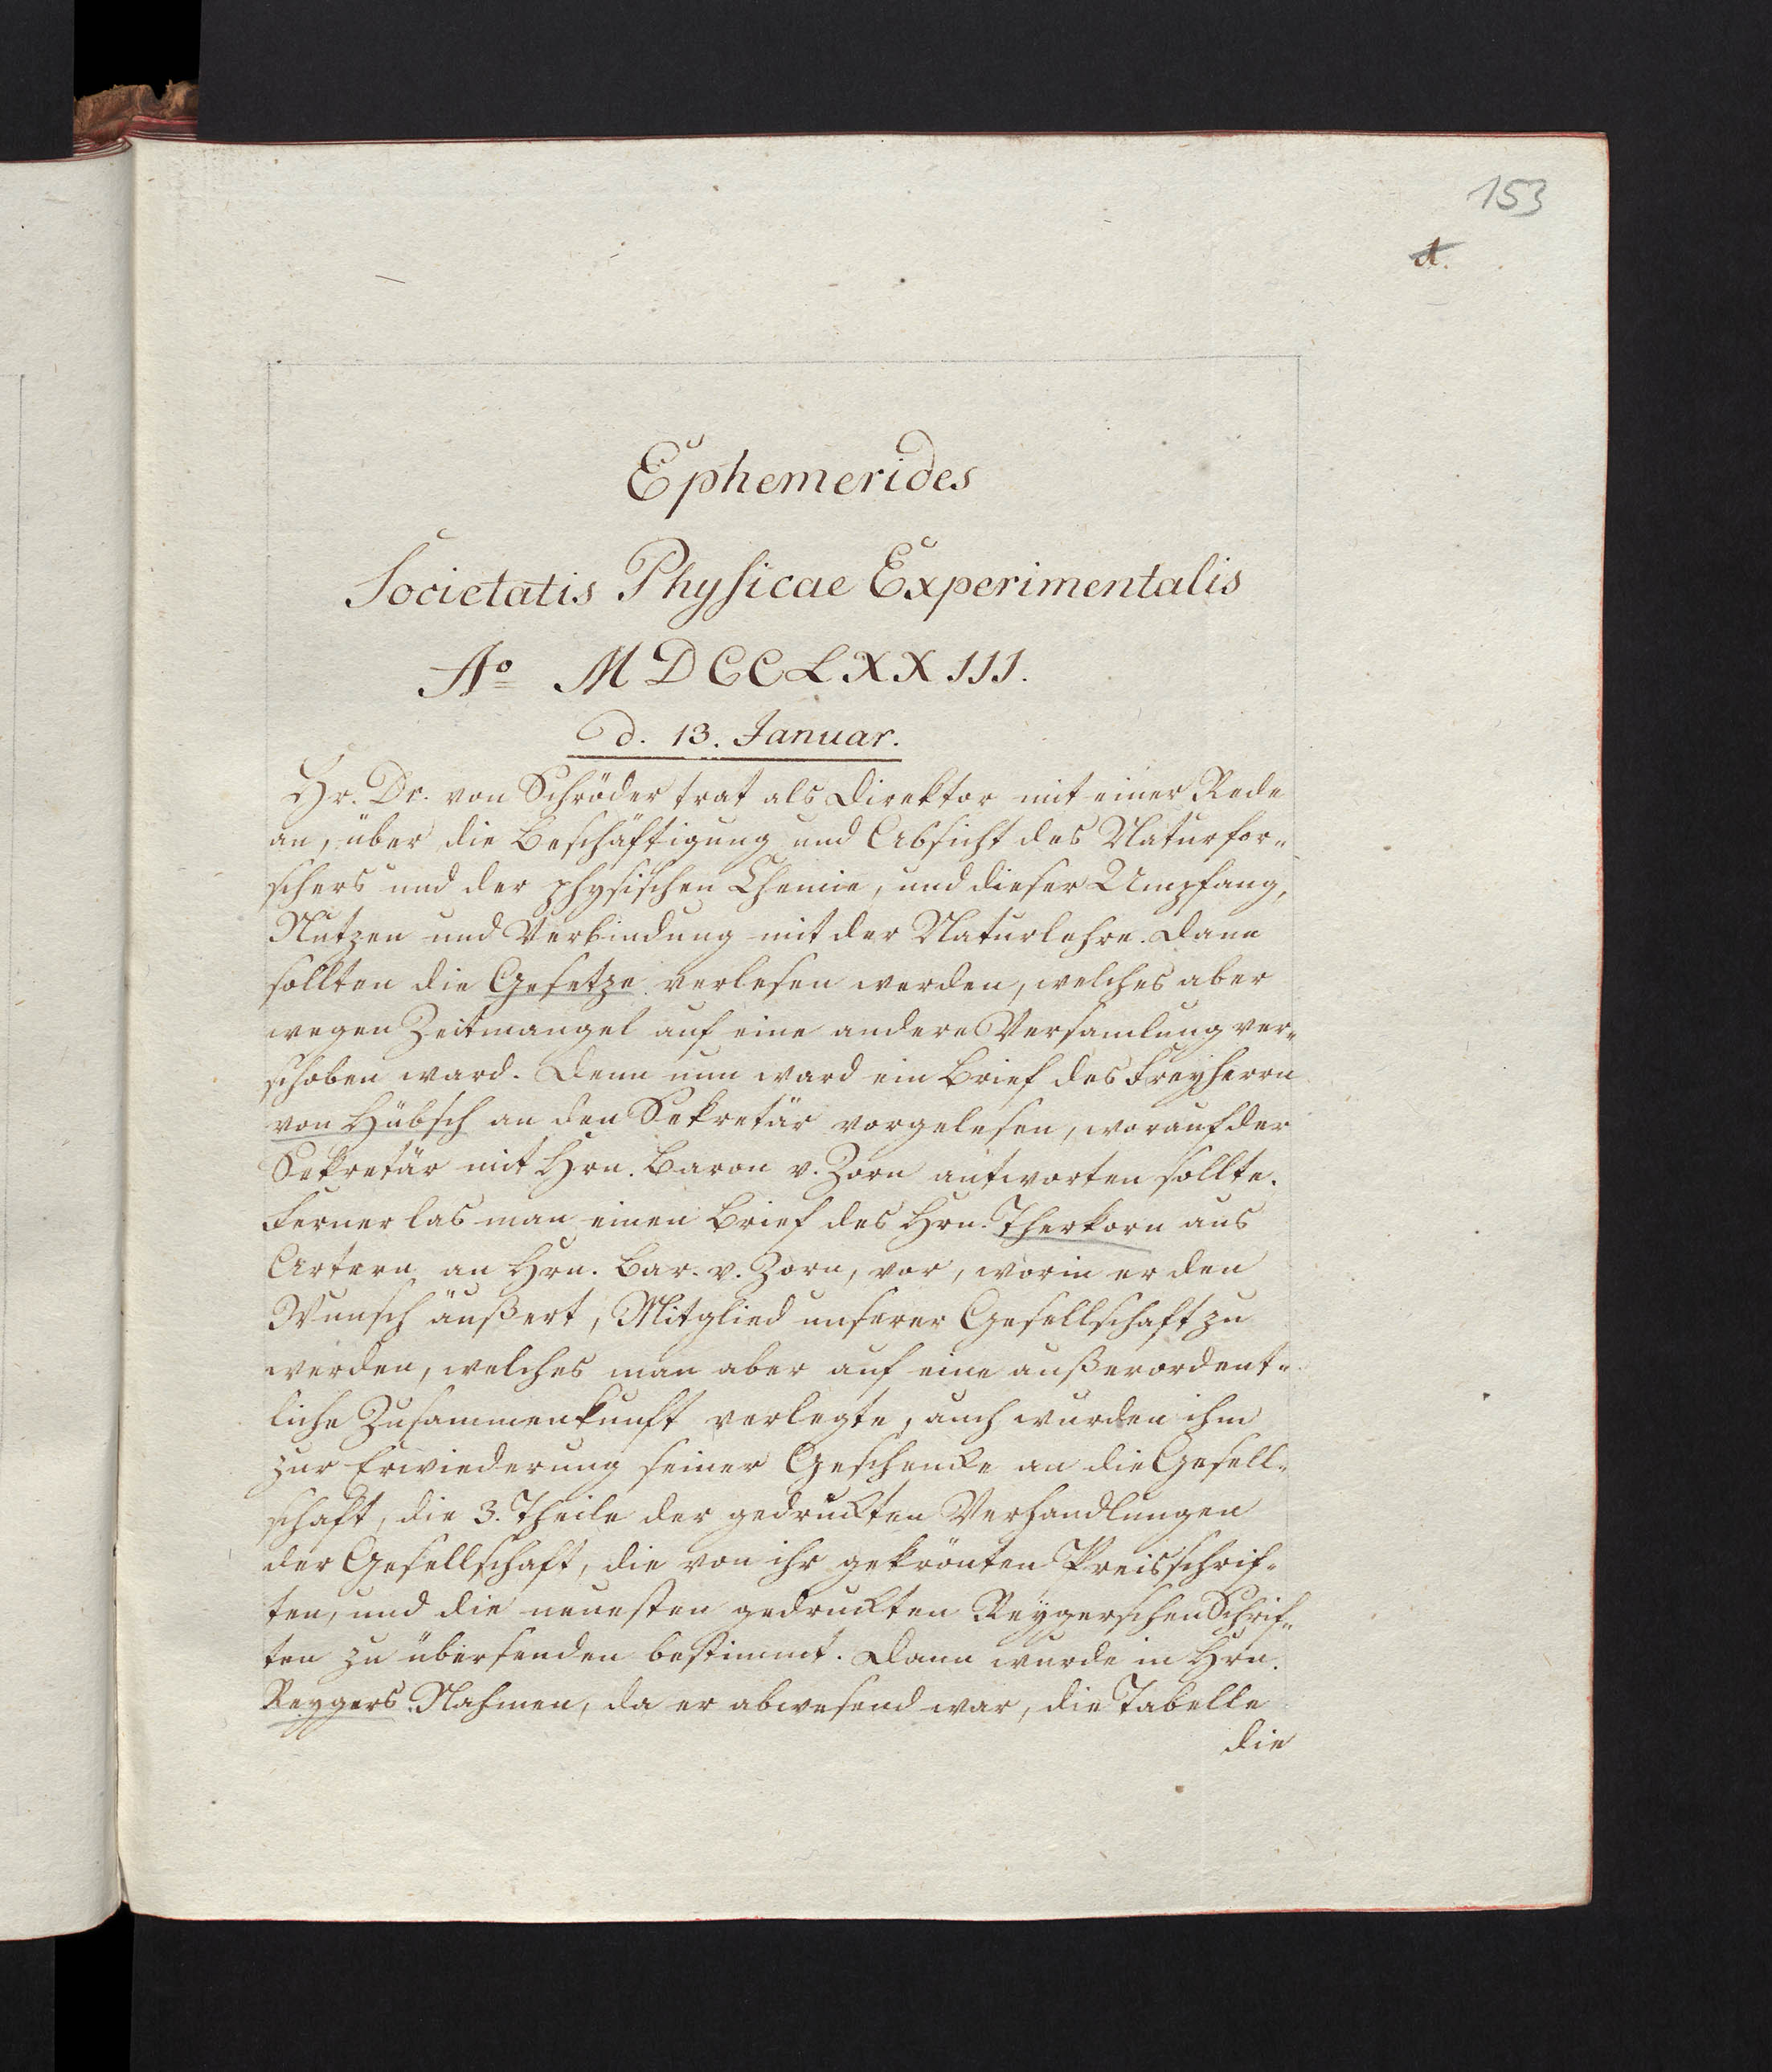 153
1.
Ephemerides
Societatis Physicae Experimentalis
Aº MDCCLXXIII.
d. 13. Januar.
Hr. Dr. von Schröder trat als Direktor mit einer Rede
an, über die Beschäftigung und Absicht des Naturfor„
schers und der physischen Chemie, und dieser Umpfang,
Nutzen und Verbindung mit der Naturlehre. Dann
sollten die Gesetze verlesen werden, welches aber
wegen Zeitmangel auf eine andere Versamlung ver„
schoben ward. Denn nun ward ein Brief des Freyherrn
von Hübsch an den Sekretär vorgelesen, worauf der
Sekretär mit Hrn. Baron v. Zorn antworten sollte.
Ferner las man einen Brief des Hrn. Therkorn aus
Artern an Hrn. Bar. v. Zorn, vor, worin er den
Wunsch äußert, Mitglied unserer Gesellschaft zu
werden, welches man aber auf eine außerordent„
liche Zusammenkunft verlegte, auch wurden ihm
zur Erwiederung seiner Geschencke an die Gesell„
schaft, die 3. Theile der gedruckten Verhandlungen
der Gesellschaft, die von ihr gekrönten Preisschrif„
ten, und die neuesten gedruckten Reygerschen Schrif„
ten zu übersenden bestimmt. Dann wurde in Hrn.
Reygers Nahmen, da er abwesend war, die Tabelle
die